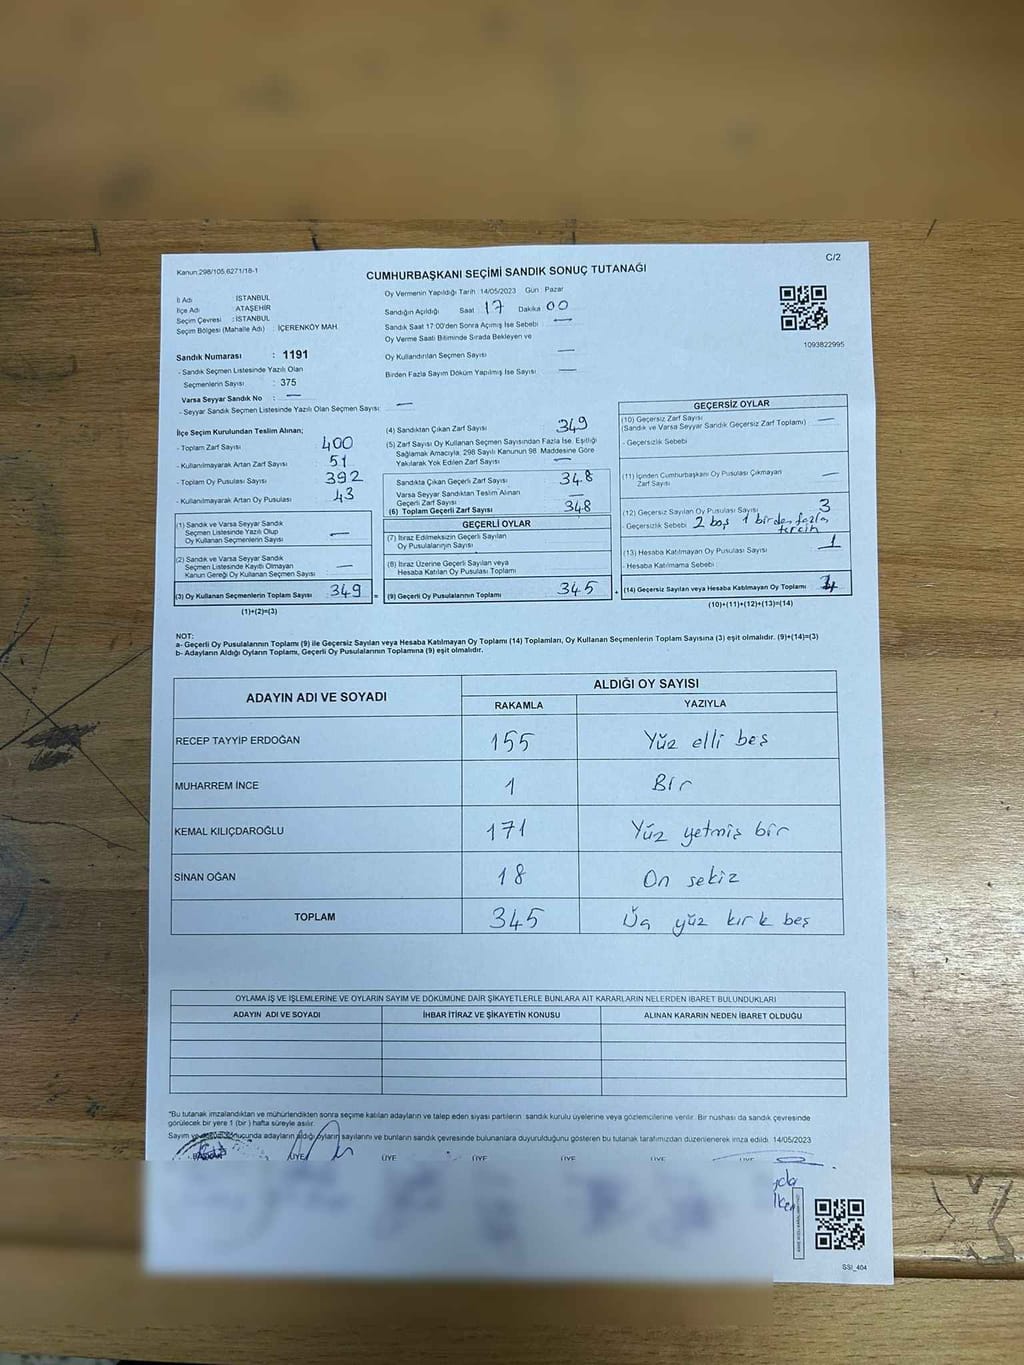 Kanun:298/105,6271/18-1
C/2
CUMHURBAŞKANI SEÇİMİ SANDIK SONUÇ TUTANAĞI
İl Adı : İSTANBUL
İlçe Adı : ATAŞEHİR
Seçim Çevresi : İSTANBUL
Seçim Bölgesi (Mahalle Adı) : İÇERENKÖY MAH.
Sandık Numarası : 1191
- Sandık Seçmen Listesinde Yazılı Olan
Seçmenlerin Sayısı : 375
Varsa Seyyar Sandık No : —
- Seyyar Sandık Seçmen Listesinde Yazılı Olan Seçmen Sayısı: —
Oy Vermenin Yapıldığı Tarih : 14/05/2023 Gün : Pazar
Sandığın Açıldığı Saat : 17 Dakika : 00
Sandık Saat 17:00'den Sonra Açılmış İse Sebebi : —
Oy Verme Saati Bitiminde Sırada Bekleyen ve
Oy Kullandırılan Seçmen Sayısı : —
Birden Fazla Sayım Döküm Yapılmış İse Sayısı : —
1093822995
İlçe Seçim Kurulundan Teslim Alınan;
- Toplam Zarf Sayısı : 400
- Kullanılmayarak Artan Zarf Sayısı : 51
- Toplam Oy Pusulası Sayısı : 392
- Kullanılmayarak Artan Oy Pusulası : 43
(1) Sandık ve Varsa Seyyar Sandık
Seçmen Listesinde Yazılı Olup
Oy Kullanan Seçmenlerin Sayısı : —
(2) Sandık ve Varsa Seyyar Sandık
Seçmen Listesinde Kayıtlı Olmayan
Kanun Gereği Oy Kullanan Seçmen Sayısı : —
(3) Oy Kullanan Seçmenlerin Toplam Sayısı : 349 =
(1)+(2)=(3)
(4) Sandıktan Çıkan Zarf Sayısı : 349
(5) Zarf Sayısı Oy Kullanan Seçmen Sayısından Fazla İse, Eşitliği
Sağlamak Amacıyla, 298 Sayılı Kanunun 98. Maddesine Göre
Yakılarak Yok Edilen Zarf Sayısı : —
Sandıkta Çıkan Geçerli Zarf Sayısı : 348
Varsa Seyyar Sandıktan Teslim Alınan
Geçerli Zarf Sayısı : —
(6) Toplam Geçerli Zarf Sayısı : 348
GEÇERLİ OYLAR
(7) İtiraz Edilmeksizin Geçerli Sayılan
Oy Pusulalarının Sayısı :
(8) İtiraz Üzerine Geçerli Sayılan veya
Hesaba Katılan Oy Pusulası Toplamı :
(9) Geçerli Oy Pusulalarının Toplamı : 345 +
GEÇERSİZ OYLAR
(10) Geçersiz Zarf Sayısı
(Sandık ve Varsa Seyyar Sandık Geçersiz Zarf Toplamı) : —
- Geçersizlik Sebebi :
(11) İçinden Cumhurbaşkanı Oy Pusulası Çıkmayan
Zarf Sayısı : —
(12) Geçersiz Sayılan Oy Pusulası Sayısı : 3
- Geçersizlik Sebebi : 2 boş 1 birden fazla
tercih
(13) Hesaba Katılmayan Oy Pusulası Sayısı : 1
- Hesaba Katılmama Sebebi :
(14) Geçersiz Sayılan veya Hesaba Katılmayan Oy Toplamı :
(10)+(11)+(12)+(13)=(14)
NOT:
a- Geçerli Oy Pusulalarının Toplamı (9) ile Geçersiz Sayılan veya Hesaba Katılmayan Oy Toplamı (14) Toplamları, Oy Kullanan Seçmenlerin Toplam Sayısına (3) eşit olmalıdır. (9)+(14)=(3)
b- Adayların Aldığı Oyların Toplamı, Geçerli Oy Pusulalarının Toplamına (9) eşit olmalıdır.
ADAYIN ADI VE SOYADI ALDIĞI OY SAYISI
RAKAMLA YAZIYLA
RECEP TAYYİP ERDOĞAN 155 Yüz elli beş
MUHARREM İNCE 1 Bir
KEMAL KILIÇDAROĞLU 171 Yüz yetmiş bir
SİNAN OĞAN 18 On sekiz
TOPLAM 345 Üç yüz kırk beş
OYLAMA İŞ VE İŞLEMLERİNE VE OYLARIN SAYIM VE DÖKÜMÜNE DAİR ŞİKAYETLERLE BUNLARA AİT KARARLARIN NELERDEN İBARET BULUNDUKLARI
ADAYIN ADI VE SOYADI İHBAR İTİRAZ VE ŞİKAYETİN KONUSU ALINAN KARARIN NEDEN İBARET OLDUĞU
*Bu tutanak imzalandıktan ve mühürlendikten sonra seçime katılan adayların ve talep eden siyasi partilerin sandık kurulu üyelerine veya gözlemcilerine verilir. Bir nüshası da sandık çevresinde
görülecek bir yere 1 (bir) hafta süreyle asılır.
Sayım ve sonucunda adayların aldığı oyların sayılarını ve bunların sandık çevresinde bulunanlara duyurulduğunu gösteren bu tutanak tarafımızdan düzenlenerek imza edildi. 14/05/2023
BAŞKAN ÜYE ÜYE ÜYE ÜYE ÜYE ÜYE
SSİ_404